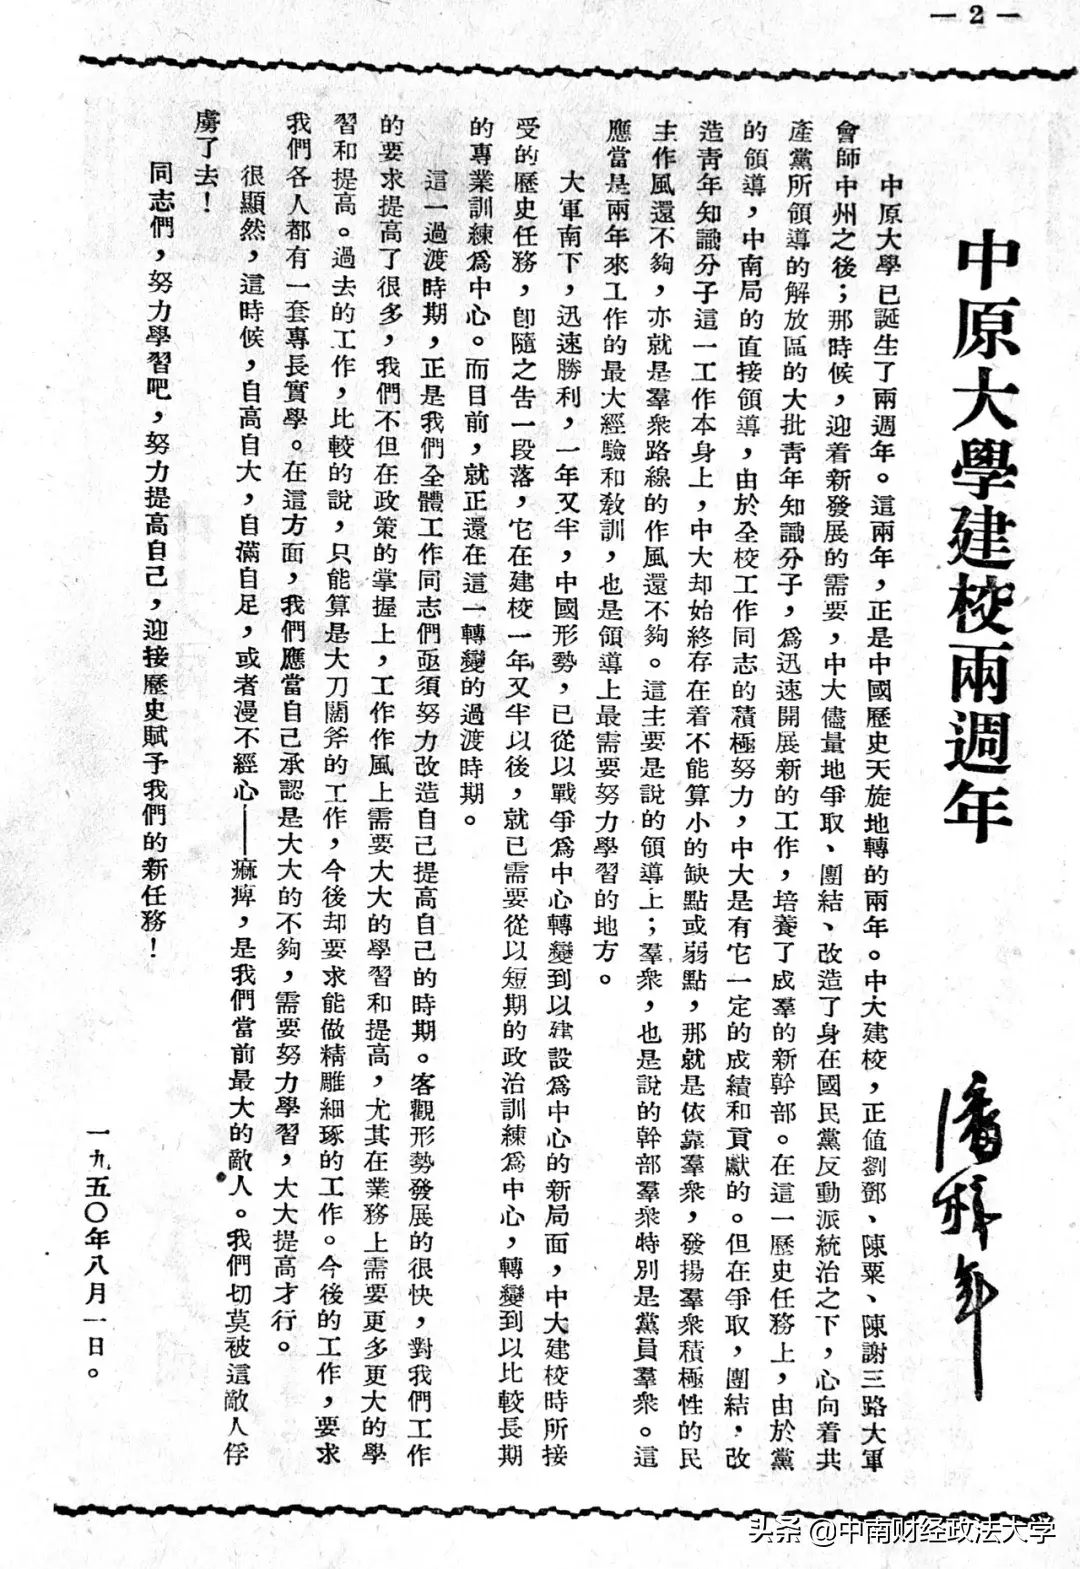 —2—
中原大學建校兩週年
潘梓年
中原大學已誕生了兩週年。這兩年，正是中國歷史天旋地轉的兩年。中大建校，正値劉鄧、陳粟、陳謝三路大軍
會師中州之後；那時候，迎着新發展的需要，中大儘量地爭取、團結、改造了身在國民黨反動派統治之下，心向着共
產黨所領導的解放區的大批靑年知識分子，爲迅速開展新的工作，培養了成羣的新幹部。在這一歷史任務上，由於黨
的領導，中南局的直接領導，由於全校工作同志的積極努力，中大是有它一定的成績和貢獻的。但在爭取，團結，改
造靑年知識分子這一工作本身上，中大却始終存在着不能算小的缺點或弱點，那就是依靠羣衆，發揚羣衆積極性的民
主作風還不夠，亦就是羣衆路線的作風還不夠。這主要是說的領導上；羣衆，也是說的幹部羣衆特別是黨員羣衆。這
應當是兩年來工作的最大經驗和敎訓，也是領導上最需要努力學習的地方。
大軍南下，迅速勝利，一年又半，中國形勢，已從以戰爭爲中心轉變到以建設爲中心的新局面，中大建校時所接
受的歷史任務，卽隨之告一段落，它在建校一年又半以後，就已需要從以短期的政治訓練爲中心，轉變到以比較長期
的專業訓練爲中心。而目前，就正還在這一轉變的過渡時期。
這一過渡時期，正是我們全體工作同志們亟須努力改造自己提高自己的時期。客觀形勢發展的很快，對我們工作
的要求提高了很多，我們不但在政策的掌握上，工作作風上需要大大的學習和提高，尤其在業務上需要更多更大的學
習和提高。過去的工作，比較的說，只能算是大刀闊斧的工作，今後却要求能做精雕細琢的工作。今後的工作，要求
我們各人都有一套專長實學。在這方面，我們應當自己承認是大大的不夠，需要努力學習，大大提高才行。
很顯然，這時候，自高自大，自滿自足，或者漫不經心——痲痺，是我們當前最大的敵人。我們切莫被這敵人俘
虜了去！
同志們，努力學習吧，努力提高自己，迎接歷史賦予我們的新任務！
一九五〇年八月一日。
头条 @中南财经政法大学